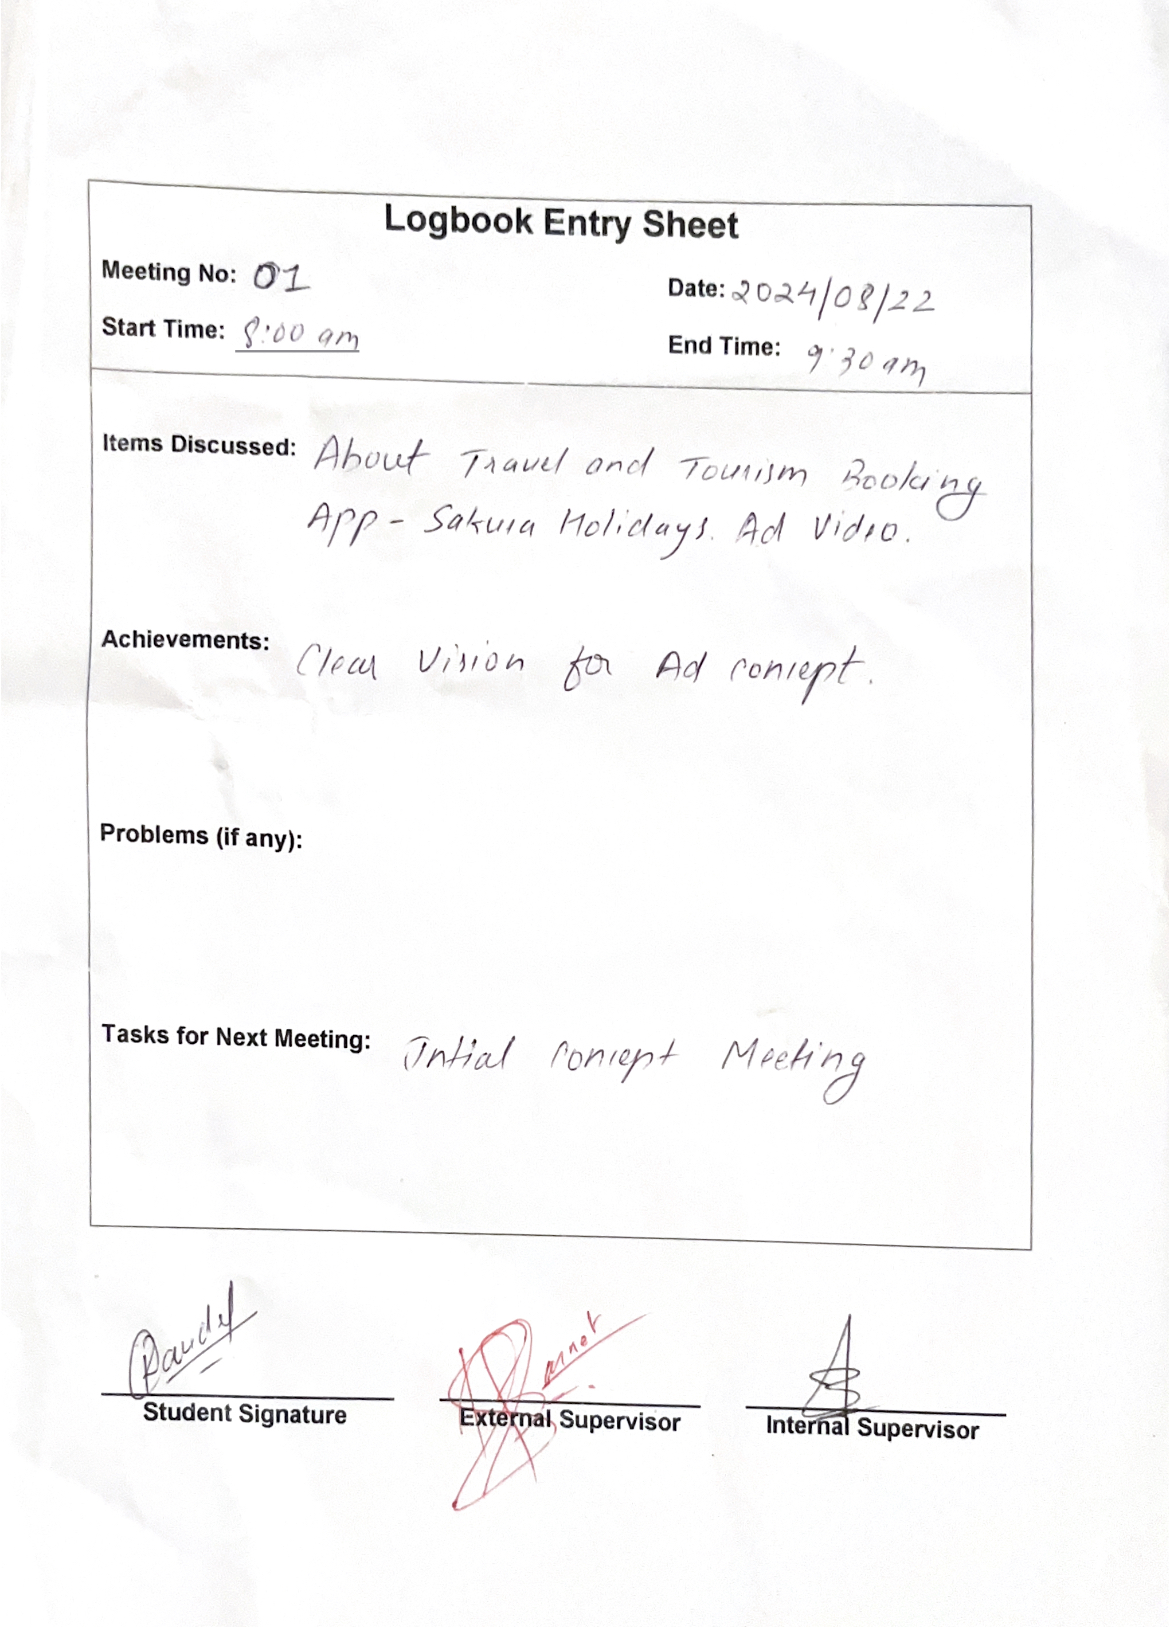 Logbook Entry Sheet
Meeting No: 01
Date: 2024/08/22
Start Time: 8:00 am
End Time: 9:30 am
Items Discussed: About Travel and Tourism Booking
App - Sakura Holidays. Ad Video.
Achievements: Clear Vision for Ad concept.
Problems (if any):
Tasks for Next Meeting: Intial Concept Meeting
Student Signature
External Supervisor
Internal Supervisor